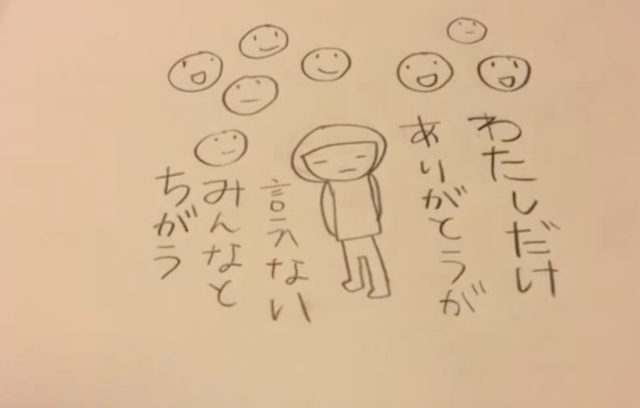 わたしだけ
ありがとうが
言えない
みんなと
ちがう